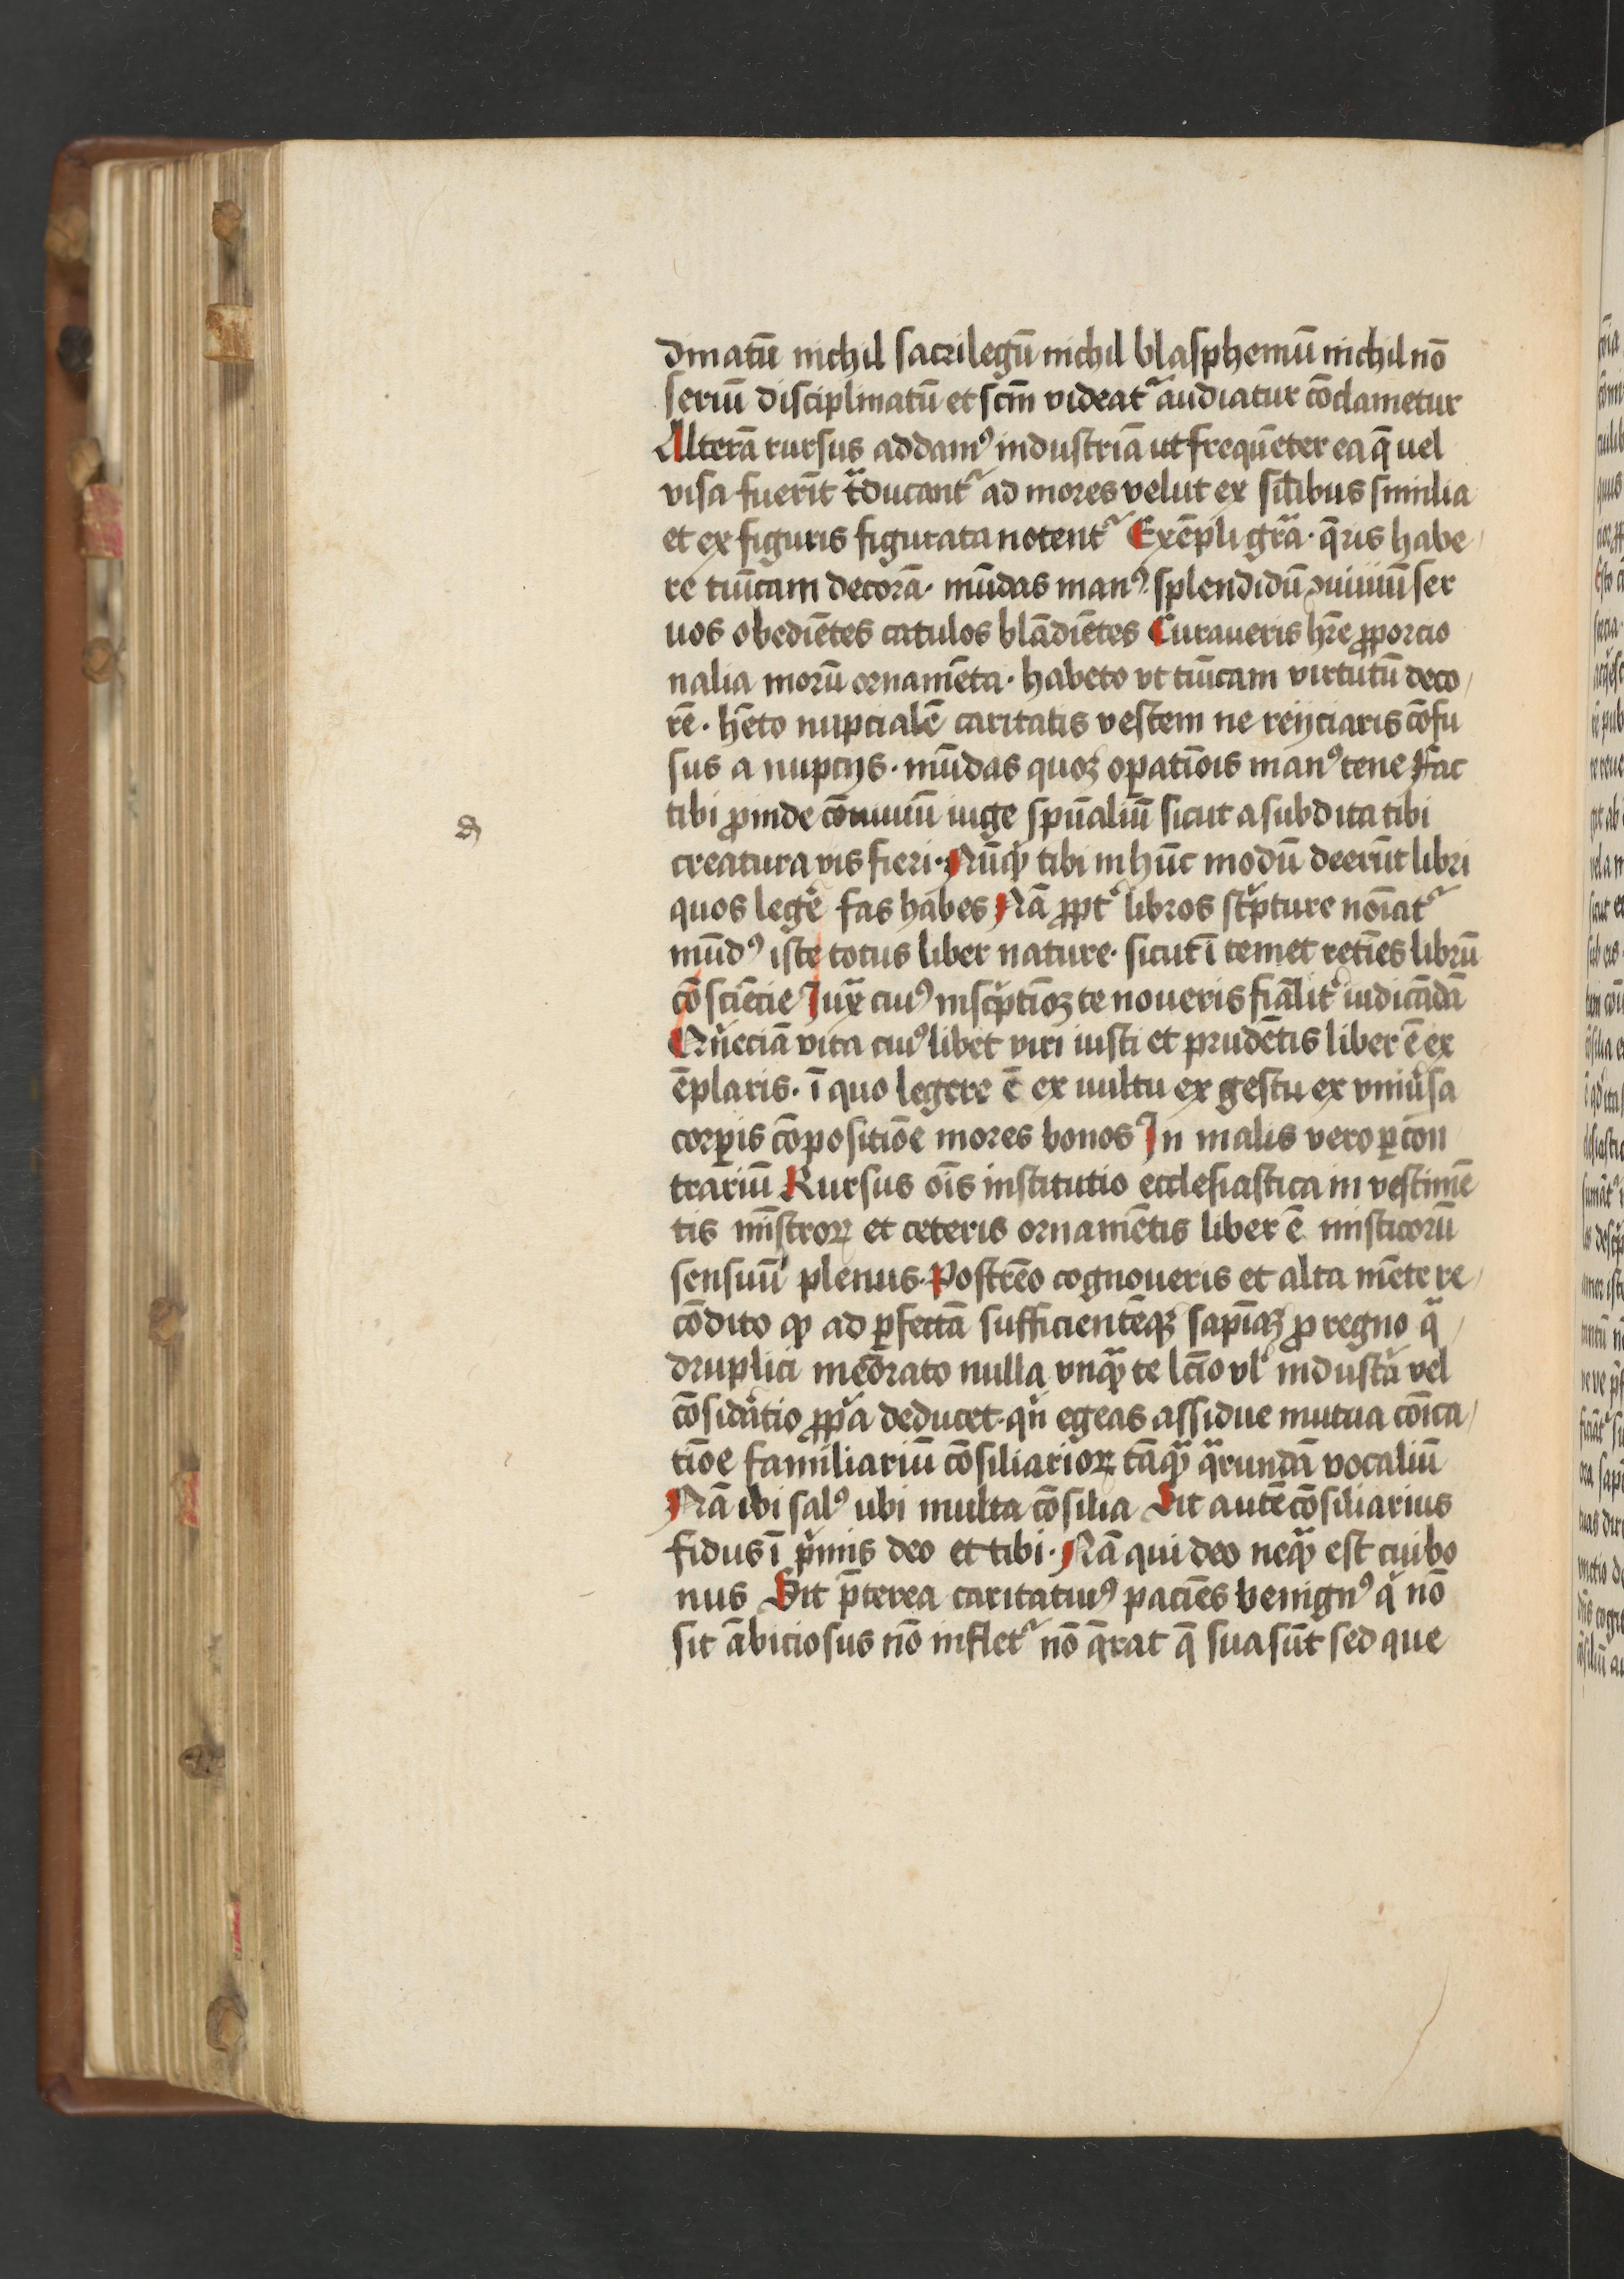 dinatū nichil sacrilegū nichil blasphemū nichil nō
seriū disciplinatū et scm̄ videat᷑ audiatur cōclametur
Alterā rursus addamꝰ industriā ut freqūeter ea q̄ uel
visa fuerīt tͣducant᷑ ad mores velut ex sil̄ibus similia
et ex figuris figurata notent᷑ Exēpli grā · q̄ris habe
re tuīcam decorā · mūdas manꝰ · splendidū ꝯuiuiū ser
uos obediētes catulos blādiētes Curaueris hr̄e ꝓporcio
nalia morū ornamēta · habeto vt tuīcam virtutū deco
rē · hēto nupcialē caritatis vestem ne reijciaris cōfu
sus a nupcijs · mūdas quoꝫ oꝑatiōis manꝰ tene Fac
tibi ꝓinde cōuiuiū iuge spūaliū sicut a subdita tibi
creatura vis fieri · Nūꝙͣ tibi in hūc modū deerūt libri
quos legē fas habes Nā ꝓpt᷑ libros sc͛pture noīat᷑
mūdꝰ iste totus liber nature · sicut ī temet retīes librū
cōsciētie Juxͣ cuiꝰ insc͛ptiōꝫ te noueris fīalit᷑ iudicādā
Nn̄ eciā vita cuiꝰlibet viri iusti et prudētis liber ē ex
ēplaris · ī quo legere ē ex uultu ex gestu ex vniu͛sa
corꝑis cōpositiōe mores bonos In malis vero ꝑ con
trariū Rursus oīs institutio ecclesiastica in vestimē
tis mīstroꝝ et ceteris ornamētis liber ē misticorū
sensuū plenus · Postrēo cognoueris et alta mēte re
cōdito ꝙ ad ꝑfectā sufficientēqꝫ sapīaꝫ ꝓ regno qͣ
druplici meōrato nulla vnꝙͣ te lc̄io vl᷑ industͣā vel
cōsidāͬtio ꝓpͥa deducet · qͥn egeas assidue mutua cōīca
tiōe familiariū cōsiliarioꝝ tāꝙͣ qͣrundā vocaliū
Nā ibi salꝰ ubi multa cōsilia Sit autē cōsiliarius
fidus ī pͥmis deo et tibi · Nā qui deo neꝙͣ est cui bo
nus Sit p̄terea caritatiuꝰ paciēs benignꝰ qͥ nō
sit ābiciosus nō inflet᷑ nō q̄rat q̄ sua sūt sed que